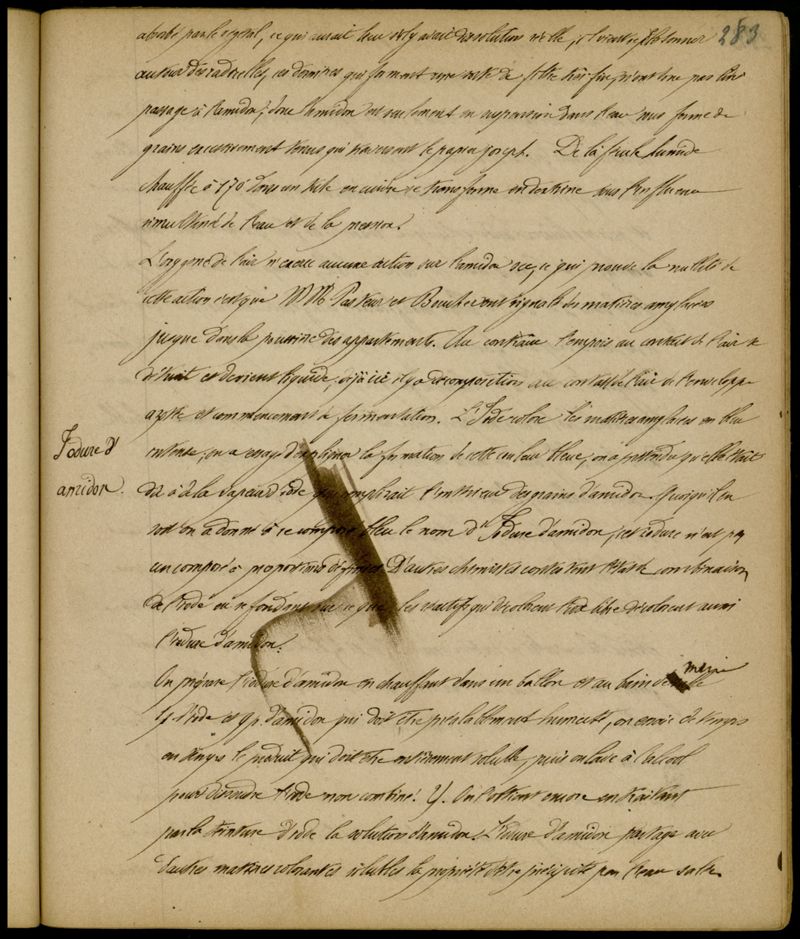 283
absorbé par le végétal, ce qui aurait lieu s'il y avait dissolution réelle,
autour des radicelles, ces dernières qui forment une sorte de filtre très fin, n'ont livré pas
passage à l'amidon, donc l'amidon est seulement en suspension dans l'eau sous forme de
grains excessivement ténus qui traversent le papier joseph. De la fécule humide
chauffée à 170 dans un tube en cuivre se transforme en dextrine sous l'influence
simultané de l'eau et de la pression.
L'oxygène de l'air n'exerce aucune action sur l'amidon sec, ce qui prouve la nullité de
cette action c'est que MM Pasteur et Pouchet ont signalé des matières amylacées
jusque dans la poussière des appartements. Au contraire l'empois au contact de l'air se
détruit et devient liquide, ici il y a décomposition au contact de l'air de l'enveloppe
azotée et commencement de fermentation. L'Iode colore les matières amylacées en bleu
intense, on a essayé d'expliquer la formation de cette couleur bleue, on a prétendu qu'elle était
Iodure d'
amidon.
dû à la vapeur d'iode qui remplirait l'intérieur des grains d'amidon. Quoiqu'il en
soit on a donné à ce composé bleu le nom d'Iodure d'amidon, cet iodure n'est pas
un composé à proportions définies. D'autres chimistes contestent cette combinaison
de l'iode en se fondant sur ce que les réactifs qui décolorent l'iode libre décolorent aussi
l'iodure d'amidon.
On prépare l'iodure d'amidon en chauffant dans un ballon et au bain marie
1 p. d'iode et 9 p. d'amidon qui doit être préalablement humecté, on essaie de temps
en temps le produit qui doit être entièrement soluble, puis on lave à l'alcool
pour dissoudre l'iode non combiné. On l'obtient encore en traitant
par la teinture d'iode la solution d'amidon. L'iodure d'amidon partage avec
d'autres matières colorantes solubles la propriété d'être précipité par l'eau salée.